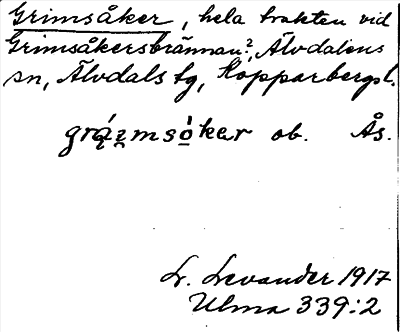 Grimsåker, hela trakten vid
Grimsåkersbrännan?, Älvdalens
sn, Älvdals tg, Kopparbergs l.
ob. Ås.
L. Levander 1917
Ulma 339:2